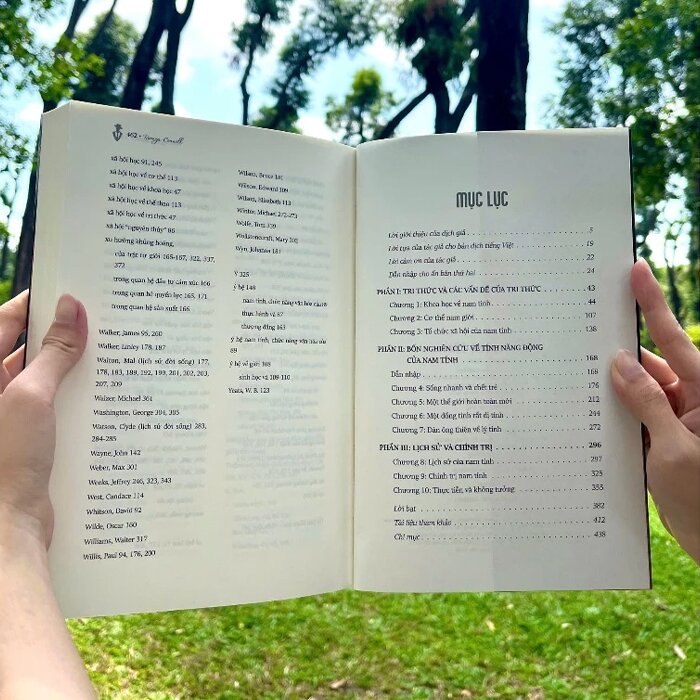 462 • Raewyn Connell
xã hội học 91, 245
xã hội học về cơ thể 113
xã hội học về khoa học 47
xã hội học về thể thao 113
xã hội học về tri thức 47
xã hội "nguyên thủy" 86
xu hướng khủng hoảng,
của trật tự giới 165-167, 322, 337,
372
trong quan hệ đầu tư cảm xúc 166
trong quan hệ quyền lực 165, 171
trong quan hệ sản xuất 166
Walker, James 95, 260
Walker, Linley 178, 187
Walton, Mal (lịch sử đời sống) 177,
178, 183, 189, 192, 199, 201, 202, 203,
207, 209
Walzer, Michael 361
Washington, George 304, 385
Watson, Clyde (lịch sử đời sống) 283,
284-285
Wayne, John 142
Weber, Max 301
Weeks, Jeffrey 246, 323, 343
West, Candace 114
Whitson, David 92
Wilde, Oscar 360
Williams, Walter 317
Willis, Paul 94, 176, 200
Wilson, Edward 109
Wilson, Elizabeth 113
Winter, Michael 272-273
Wolfe, Tom 339
Wollstonecraft, Mary 302
Wyn, Johanna 181
Ý 325
ý hệ 148
nam tính, chức năng văn hóa của
thực hành và 87
thương đẳng 163
ý hệ nam tính, chức năng văn hóa của
89
ý hệ về giới 368
sinh học và 109-110
Yeats, W. B. 123
MỤC LỤC
Lời giới thiệu của dịch giả 5
Lời tựa của tác giả cho bản dịch tiếng Việt 19
Lời cảm ơn của tác giả 22
Dẫn nhập cho ấn bản thứ hai 24
PHẦN I: TRI THỨC VÀ CÁC VẤN ĐỀ CỦA TRI THỨC 43
Chương 1: Khoa học về nam tính 44
Chương 2: Cơ thể nam giới 107
Chương 3: Tổ chức xã hội của nam tính 138
PHẦN II: BỐN NGHIÊN CỨU VỀ TÍNH NĂNG ĐỘNG
CỦA NAM TÍNH 168
Dẫn nhập 168
Chương 4: Sống nhanh và chết trẻ 176
Chương 5: Một thế giới hoàn toàn mới 212
Chương 6: Một đồng tính rất dị tính 244
Chương 7: Đàn ông thiên về lý tính 272
PHẦN III: LỊCH SỬ VÀ CHÍNH TRỊ 296
Chương 8: Lịch sử của nam tính 297
Chương 9: Chính trị nam tính 325
Chương 10: Thực tiễn và không tưởng 355
Lời bạt 382
Tài liệu tham khảo 412
Chỉ mục 438